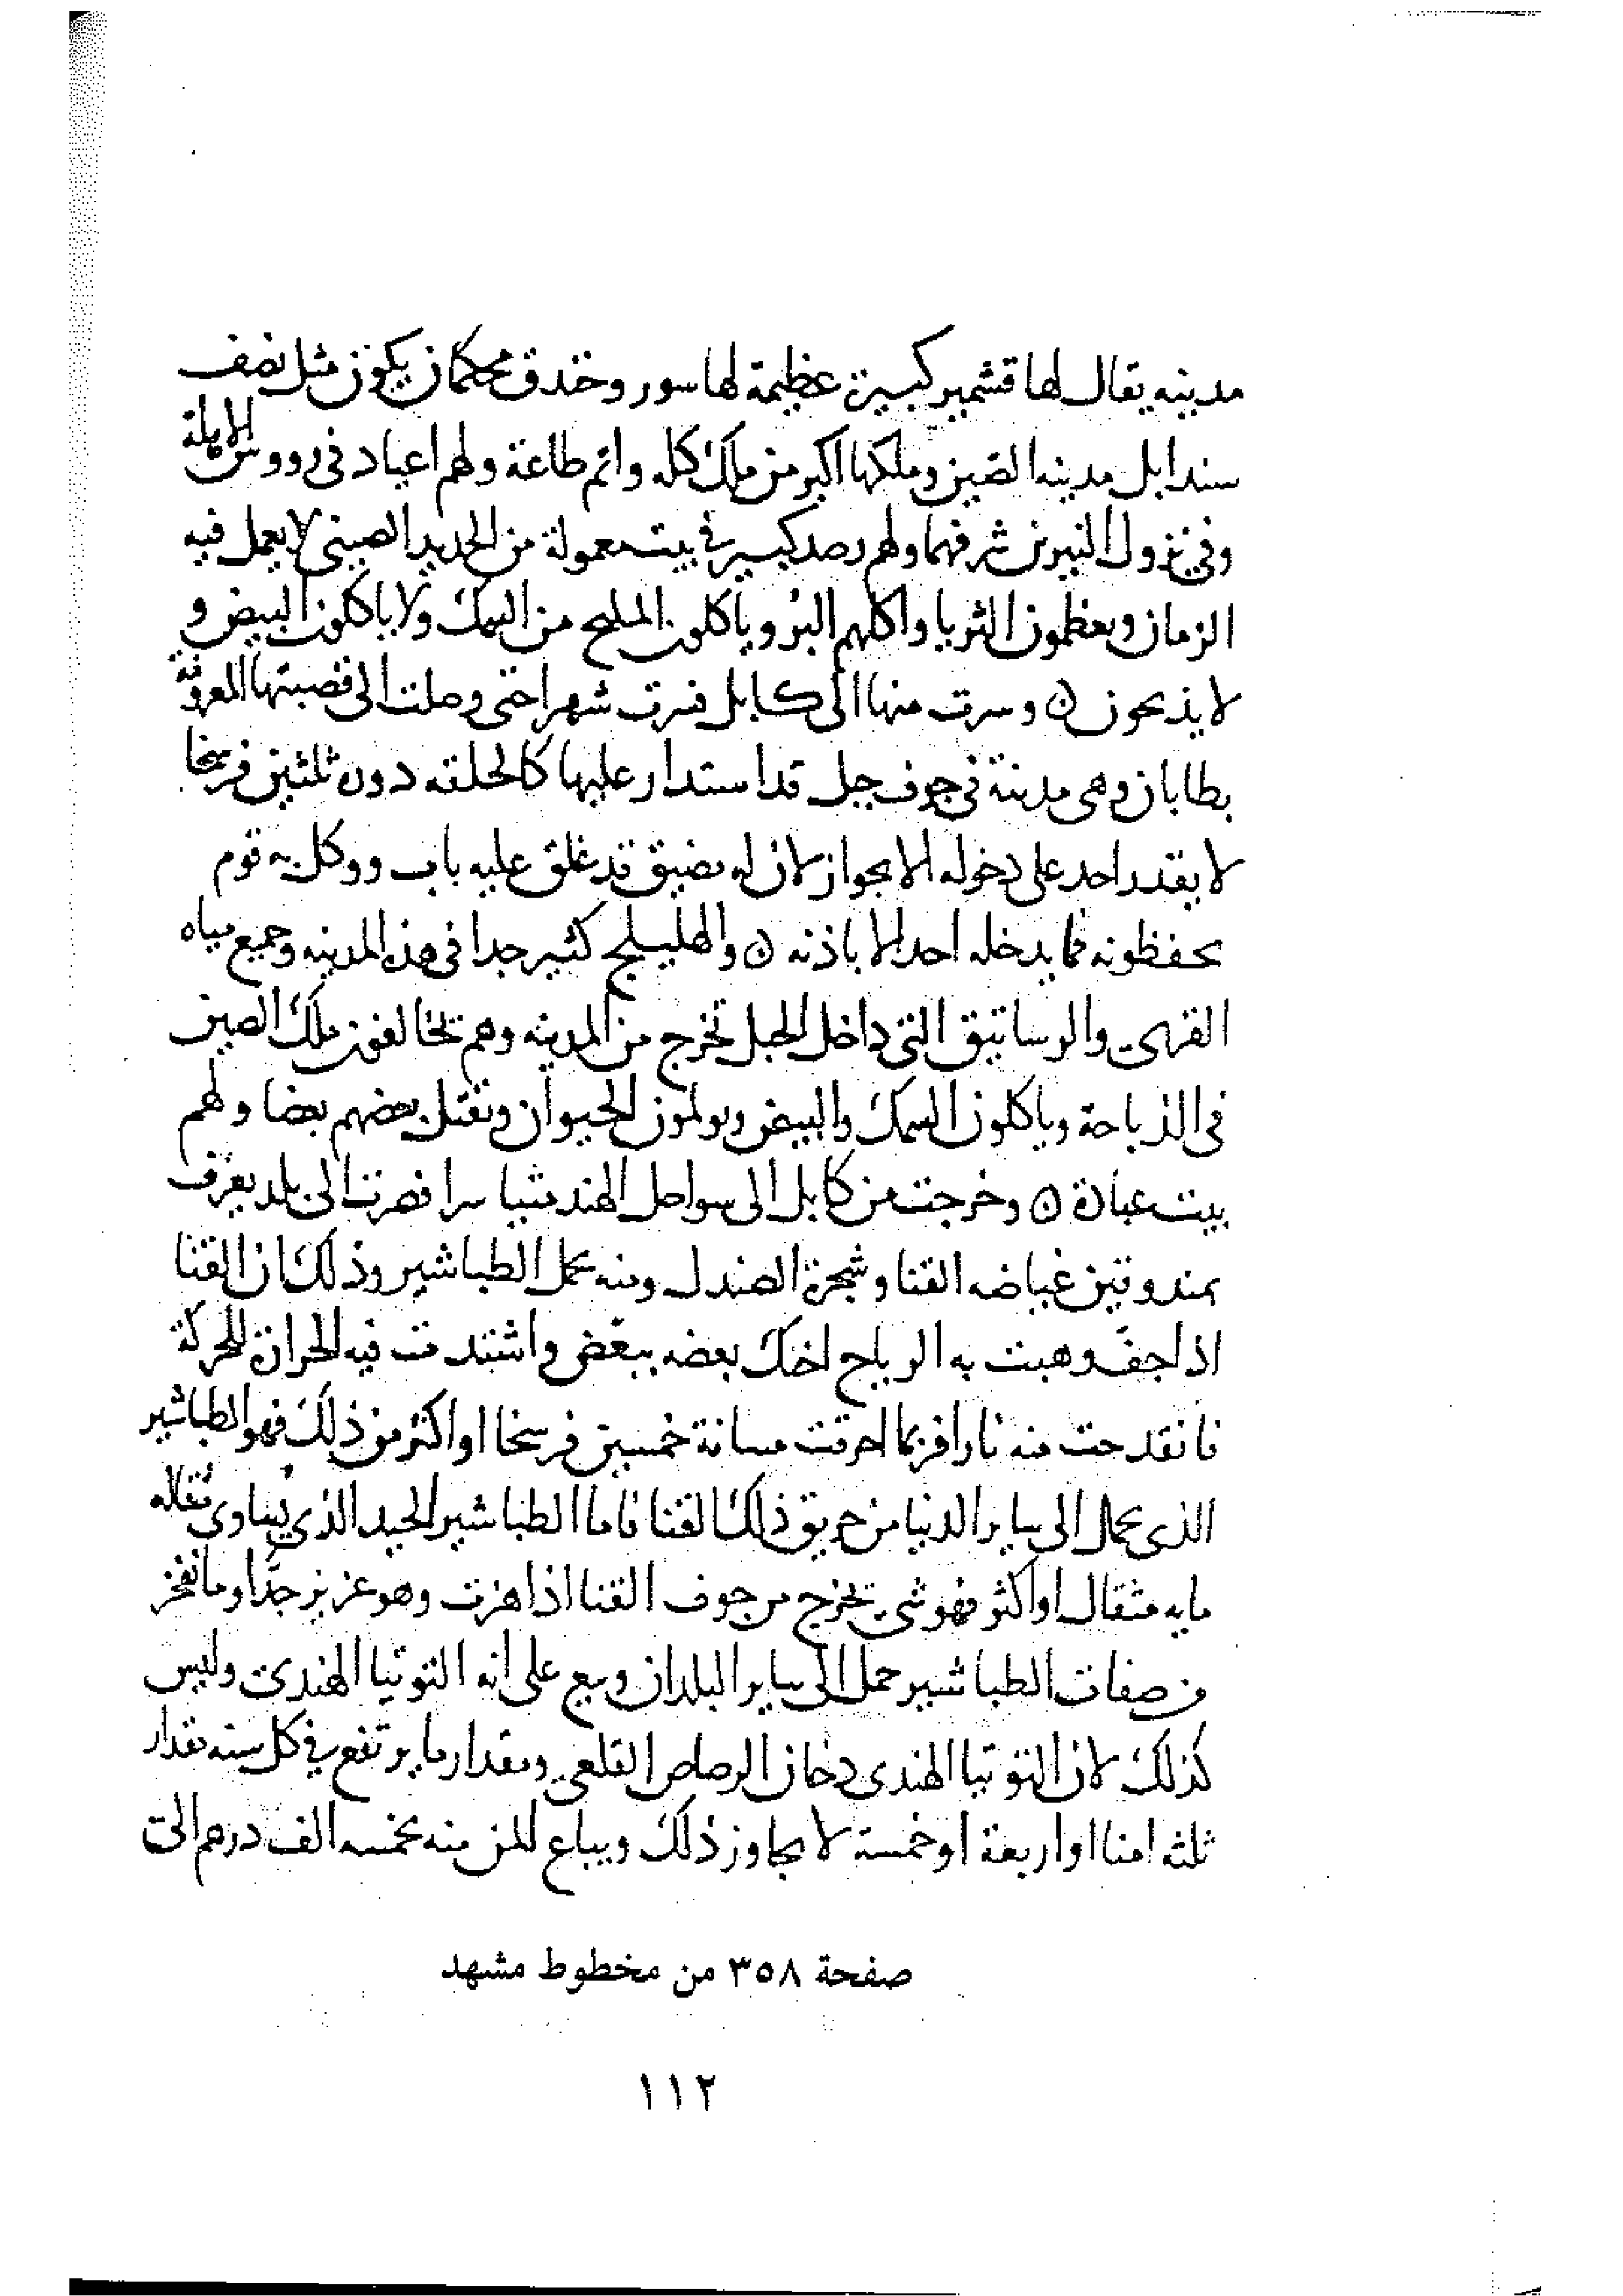 مدينه يقال لها قشمير كبيرة عظيمة لها سور وخندق محكمان يكون مثل نصف
سندابل مدينه الصين وملكها اكبر من ملك كله واتم طاعة ولهم اعياد في رووس الاهلة
وفي نزول النيرين شرفهما ولهم رصد كبير في بيت معمولة من الحديد الصيني لا يعمل فيه
الزمان ويعظمون الثريا واكلهم البر وياكلون المليح من السمك ولا ياكلون البيض و
لا يذبحون ن وسرت منها الى كابل فسرت شهرا حتى وصلت الى قصبتها المعروفة
بطابان وهي مدينة في جوف جبل قد استدار عليها كالحلقه دون ثلثين فرسخا
لا يقدر احد على دخوله الا بجواز لان له مضيق قد غلق عليه باب ووكل به قوم
يحفظونه فما يدخله احد الا باذنه ن والهليلج كثير جدا في هذه المدينه وجميع مياه
القرى والرساتيق التي داخل الجبل تخرج من المدينه وهم يخالفون ملك الصين
في الذباحة وياكلون السمك والبيض ويولمون الحيوان ويقتل بعضهم بعضا ولهم
بيت عبادة ن وخرجت من كابل الى سواحل الهند متياسرا فصرت الى بلد يعرف
بمندوقين غياضه القنا وشجرة الصندل ومنه يحمل الطباشير وذلك ان القنا
اذا جف وهبت به الرياح احتك بعضه ببعض واشتدت فيه الحرارة للحركة
فانقدحت منه نارا فربما احرقت مسافة خمسين فرسخا او اكثر من ذلك فهو الطباشير
الذي يحمل الى ساير الدنيا من حريق ذلك القنا فاما الطباشير الجيد الذي يساوي مثقاله
مايه مثقال او اكثر فهو شي يخرج من جوف القنا اذا هزت وهو عزيز جدا وما
من صفات الطباشير حمل الى ساير البلدان وبيع على انه التوتيا الهندي وليس
كذلك لان التوتيا الهندي دخان الرصاص القلعي ومقدار ما يرتفع في كل سنه مقدار
ثلثه امنا او اربعة او خمسة لا يجاوز ذلك ويباع المن منه بخمسه الف درهم الى
صفحة ٣٥٨ من مخطوط مشهد
١١٢